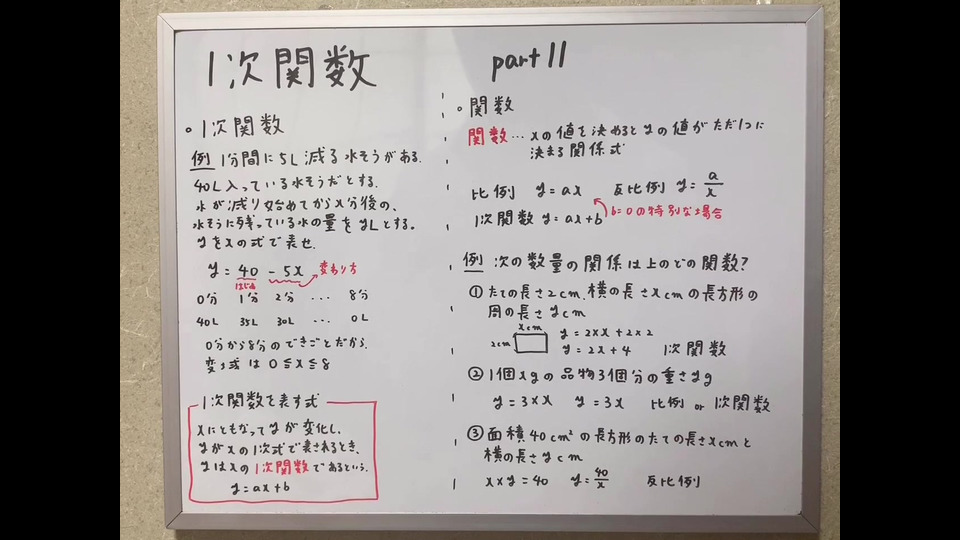 1次関数 part11
。1次関数
例 1分間に5L減る水そうがある.
40L入っている水そうだとする.
水が減り始めてからx分後の、
水そうに残っている水の量をyLとする。
yをxの式で表せ.
y = 40 - 5x 変わり方
はじめ
0分 1分 2分 ... 8分
40L 35L 30L ... 0L
0分から8分のできごとだから.
変域は 0≦x≦8
1次関数を表す式
xにともなってyが変化し、
yがxの1次式で表されるとき、
yはxの1次関数であるという.
y=ax+b
。関数
関数…xの値を決めるとyの値がただ1つに
決まる関係式
比例 y=ax 反比例 y=a/x
1次関数 y=ax+b b=0の特別な場合
例 次の数量の関係は上のどの関数?
①たての長さ2cm、横の長さxcmの長方形の
周の長さycm
xcm
2cm y=2×x+2×2
y=2x+4 1次関数
②1個xgの品物3個分の重さyg
y=3×x y=3x 比例 or 1次関数
③面積40cm²の長方形のたての長さxcmと
横の長さycm
x×y=40 y=40/x 反比例